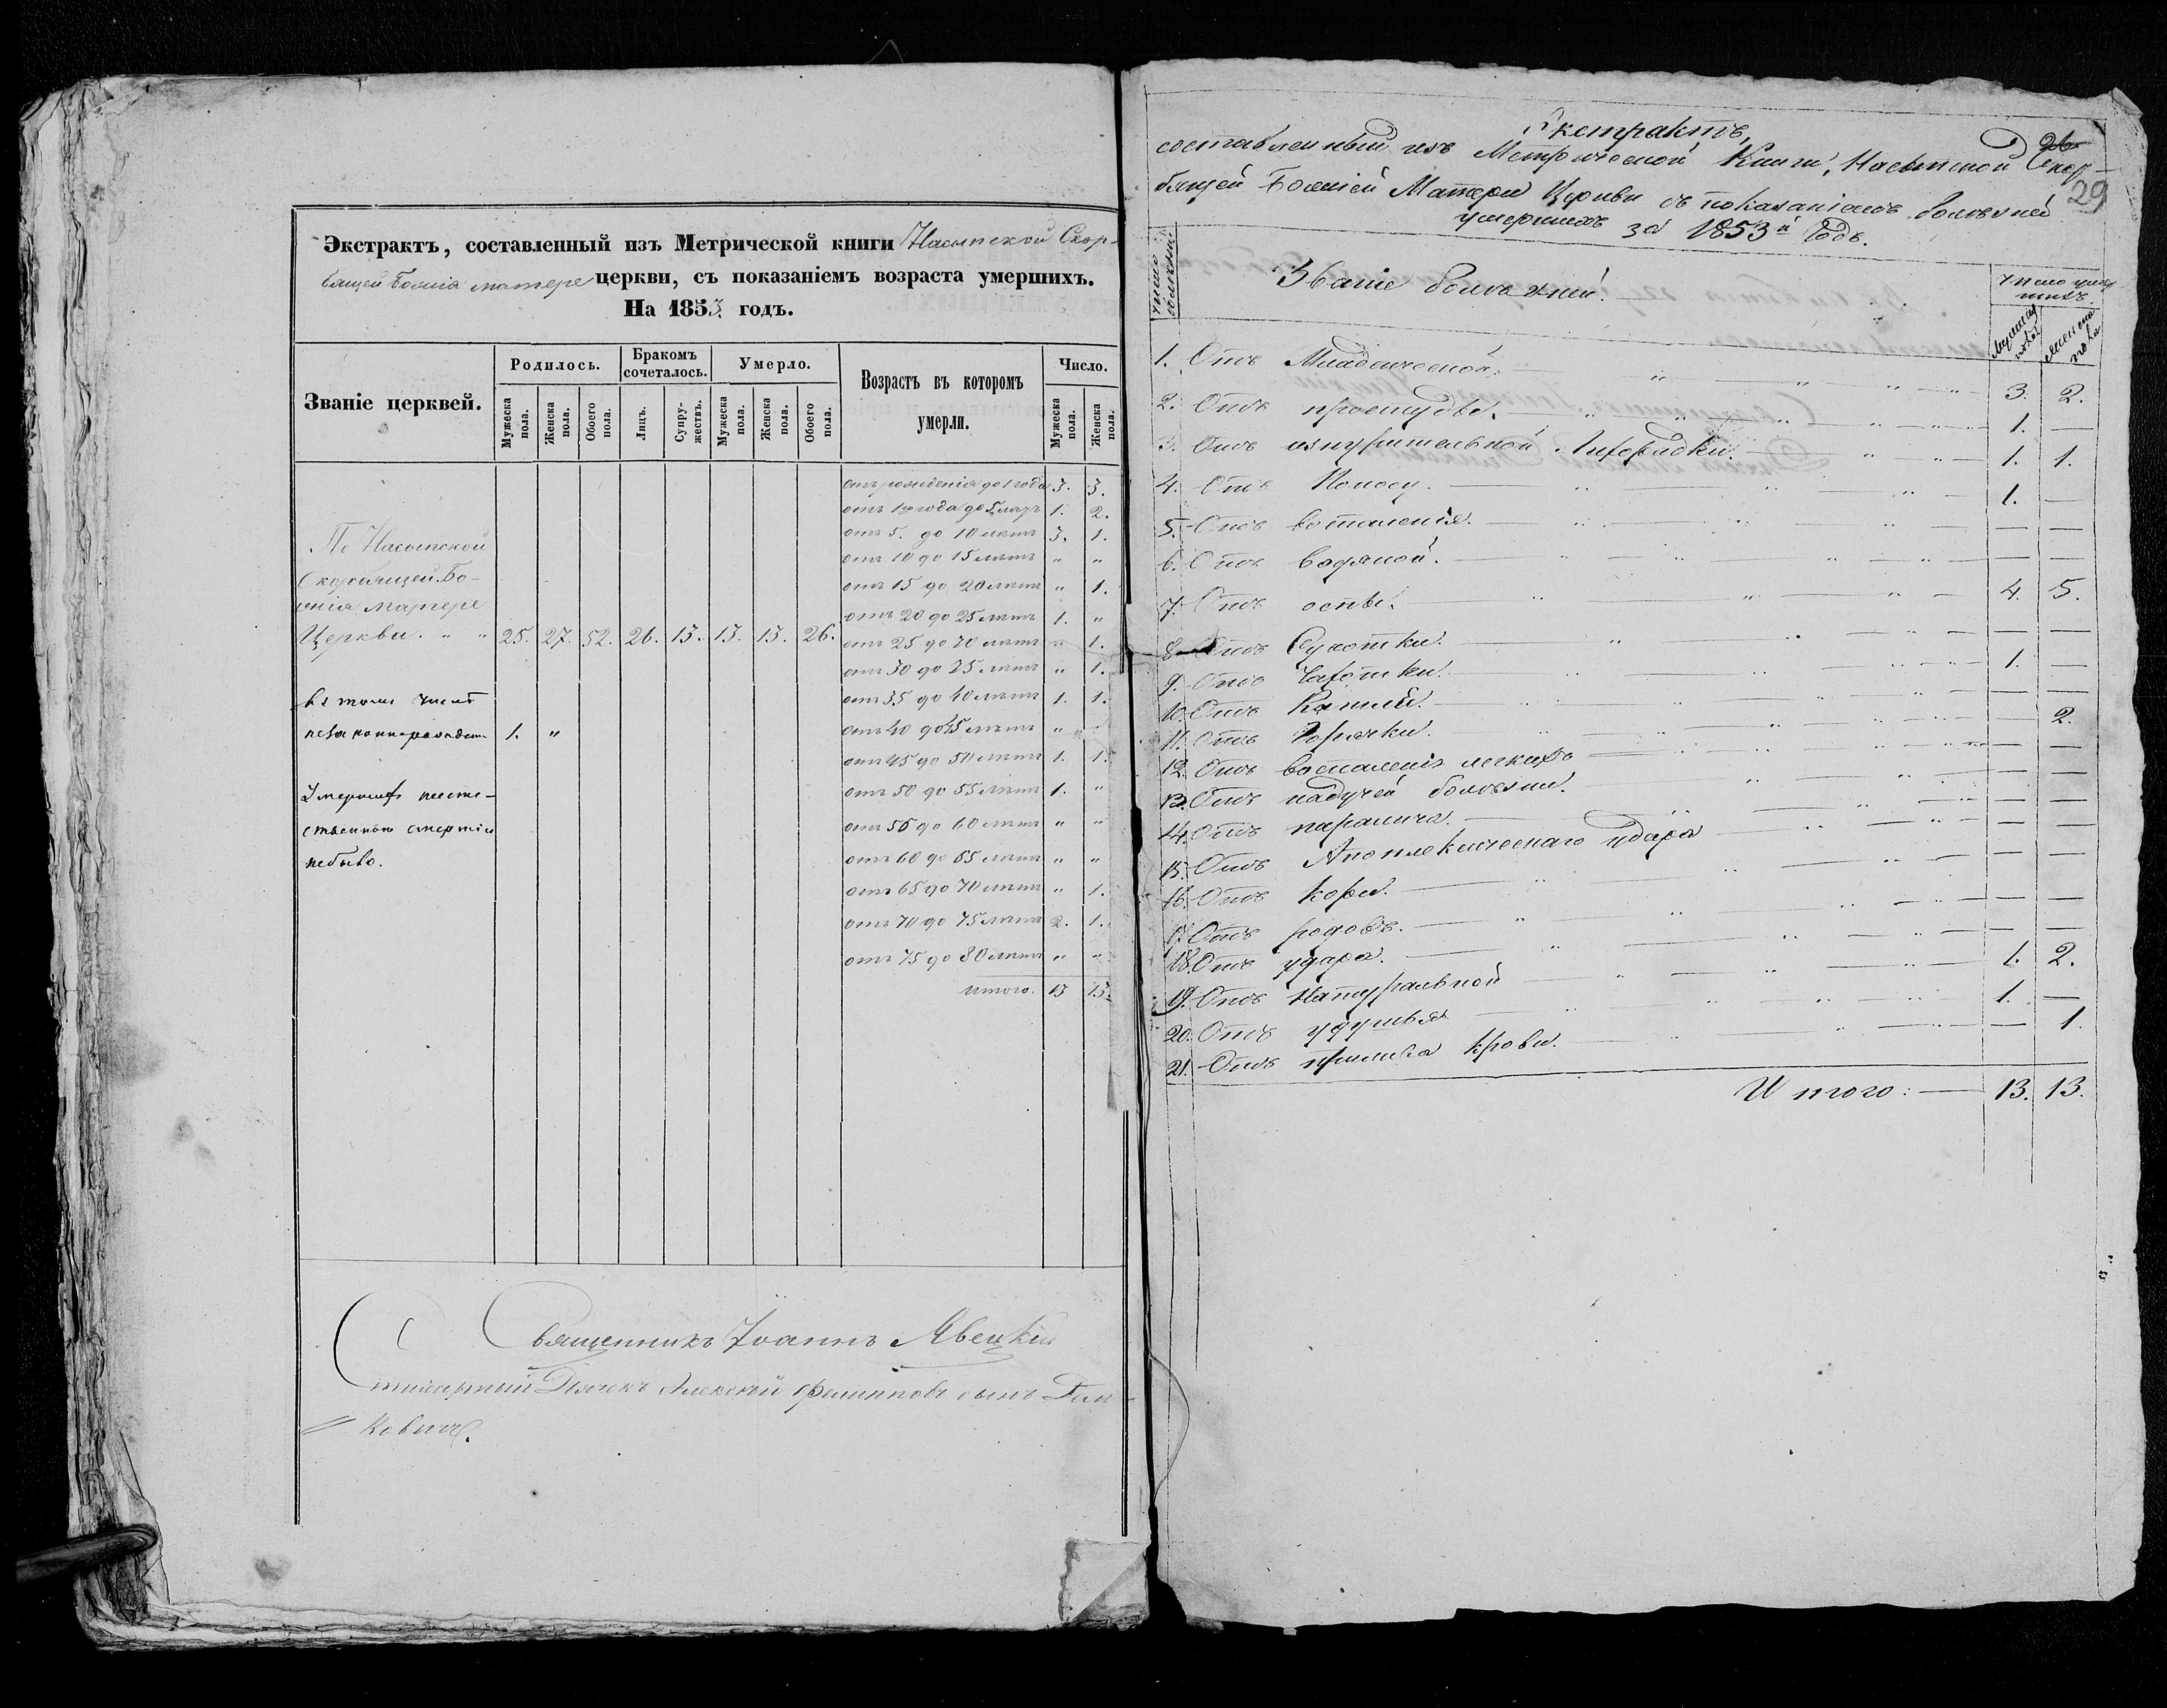 Экстрактъ, составленный изъ Метрической книги Насыпской Скор-
бящей Божія матере церкви, съ показаніемъ возраста умершихъ.
На 1853. годъ.
Званіе церквей.
Родилось.
Бракомъ сочеталось.
Умерло.
Возрастъ въ которомъ умерли.
Число.
Мужеска пола.
Женска пола.
Обоего пола.
Лицъ.
Супру-жествъ.
Мужеска пола.
Женска пола.
Обоего пола.
Мужеска пола.
Женска пола.
отъ рожденія до 1 года 3. 3.
отъ 1го года до 5 лѣтъ 1. 2.
отъ 5. до 10 лѣтъ 3. 1.
отъ 10 до 15 лѣтъ " "
отъ 15 до 20 лѣтъ " 1.
отъ 20 до 25 лѣтъ 1. "
отъ 25 до 30 лѣтъ " 1.
отъ 30 до 35 лѣтъ " 1.
отъ 35 до 40 лѣтъ 1. 1.
отъ 40 до 45 лѣтъ " "
отъ 45 до 50 лѣтъ 1. 1.
отъ 50 до 55 лѣтъ 1. "
отъ 55 до 60 лѣтъ " "
отъ 60 до 65 лѣтъ " "
отъ 65 до 70 лѣтъ " 1.
отъ 70 до 75 лѣтъ 2. 1.
отъ 75 до 80 лѣтъ " "
итого. 13 13.
По Насыпской
Скорбящей Бо-
жія Матере
Церкви. " " 25. 27. 52. 26. 13. 13. 13. 26.
въ томъ числѣ
1. "
неесте-
ственною смертію
небыло.
Священникъ Іоаннъ
Дьячекъ Алексѣй Филиповъ сынъ
Екстрактъ,
составленный изъ Метрической Книги, Насыпской Скор-
бящей Божіей Матери Церкви съ показаніемъ болѣзней
умершихъ за 1853й Годъ.
29
число болѣзней.
Званіе болѣзней.
Число умершихъ.
Мужеска пола
женска пола
1. Отъ Младенческой. " " " 3. 2.
2. Отъ простуды. " " " 1. —
3. Отъ изнурительной Лихорадки. " " 1. 1.
4. Отъ Поносу. " " " 1. —
5. Отъ воспаленія. " " " — —
6. Отъ водяной. " " " — —
7. Отъ оспы. " " " 4. 5.
8. Отъ Сухотки. " " " — —
9. Отъ Чахотки. " " " 1. —
10. Отъ Кашля. " " " — —
11. Отъ Горячки. " " " — 2.
12. Отъ воспаленія легкихъ " " — —
13. Отъ падучей болѣзни. " " — —
14. Отъ паралича. " " — —
15. Отъ Апоплексическаго удара " — —
16. Отъ кори. " " " — —
17. Отъ родовъ. " " " — —
18. Отъ удара. " " " — —
19. Отъ Натуральной " " " 1. 2.
20. Отъ удушья " " " 1. —
21. Отъ прилива Крови. " " — 1.
Итого: — 13. 13.